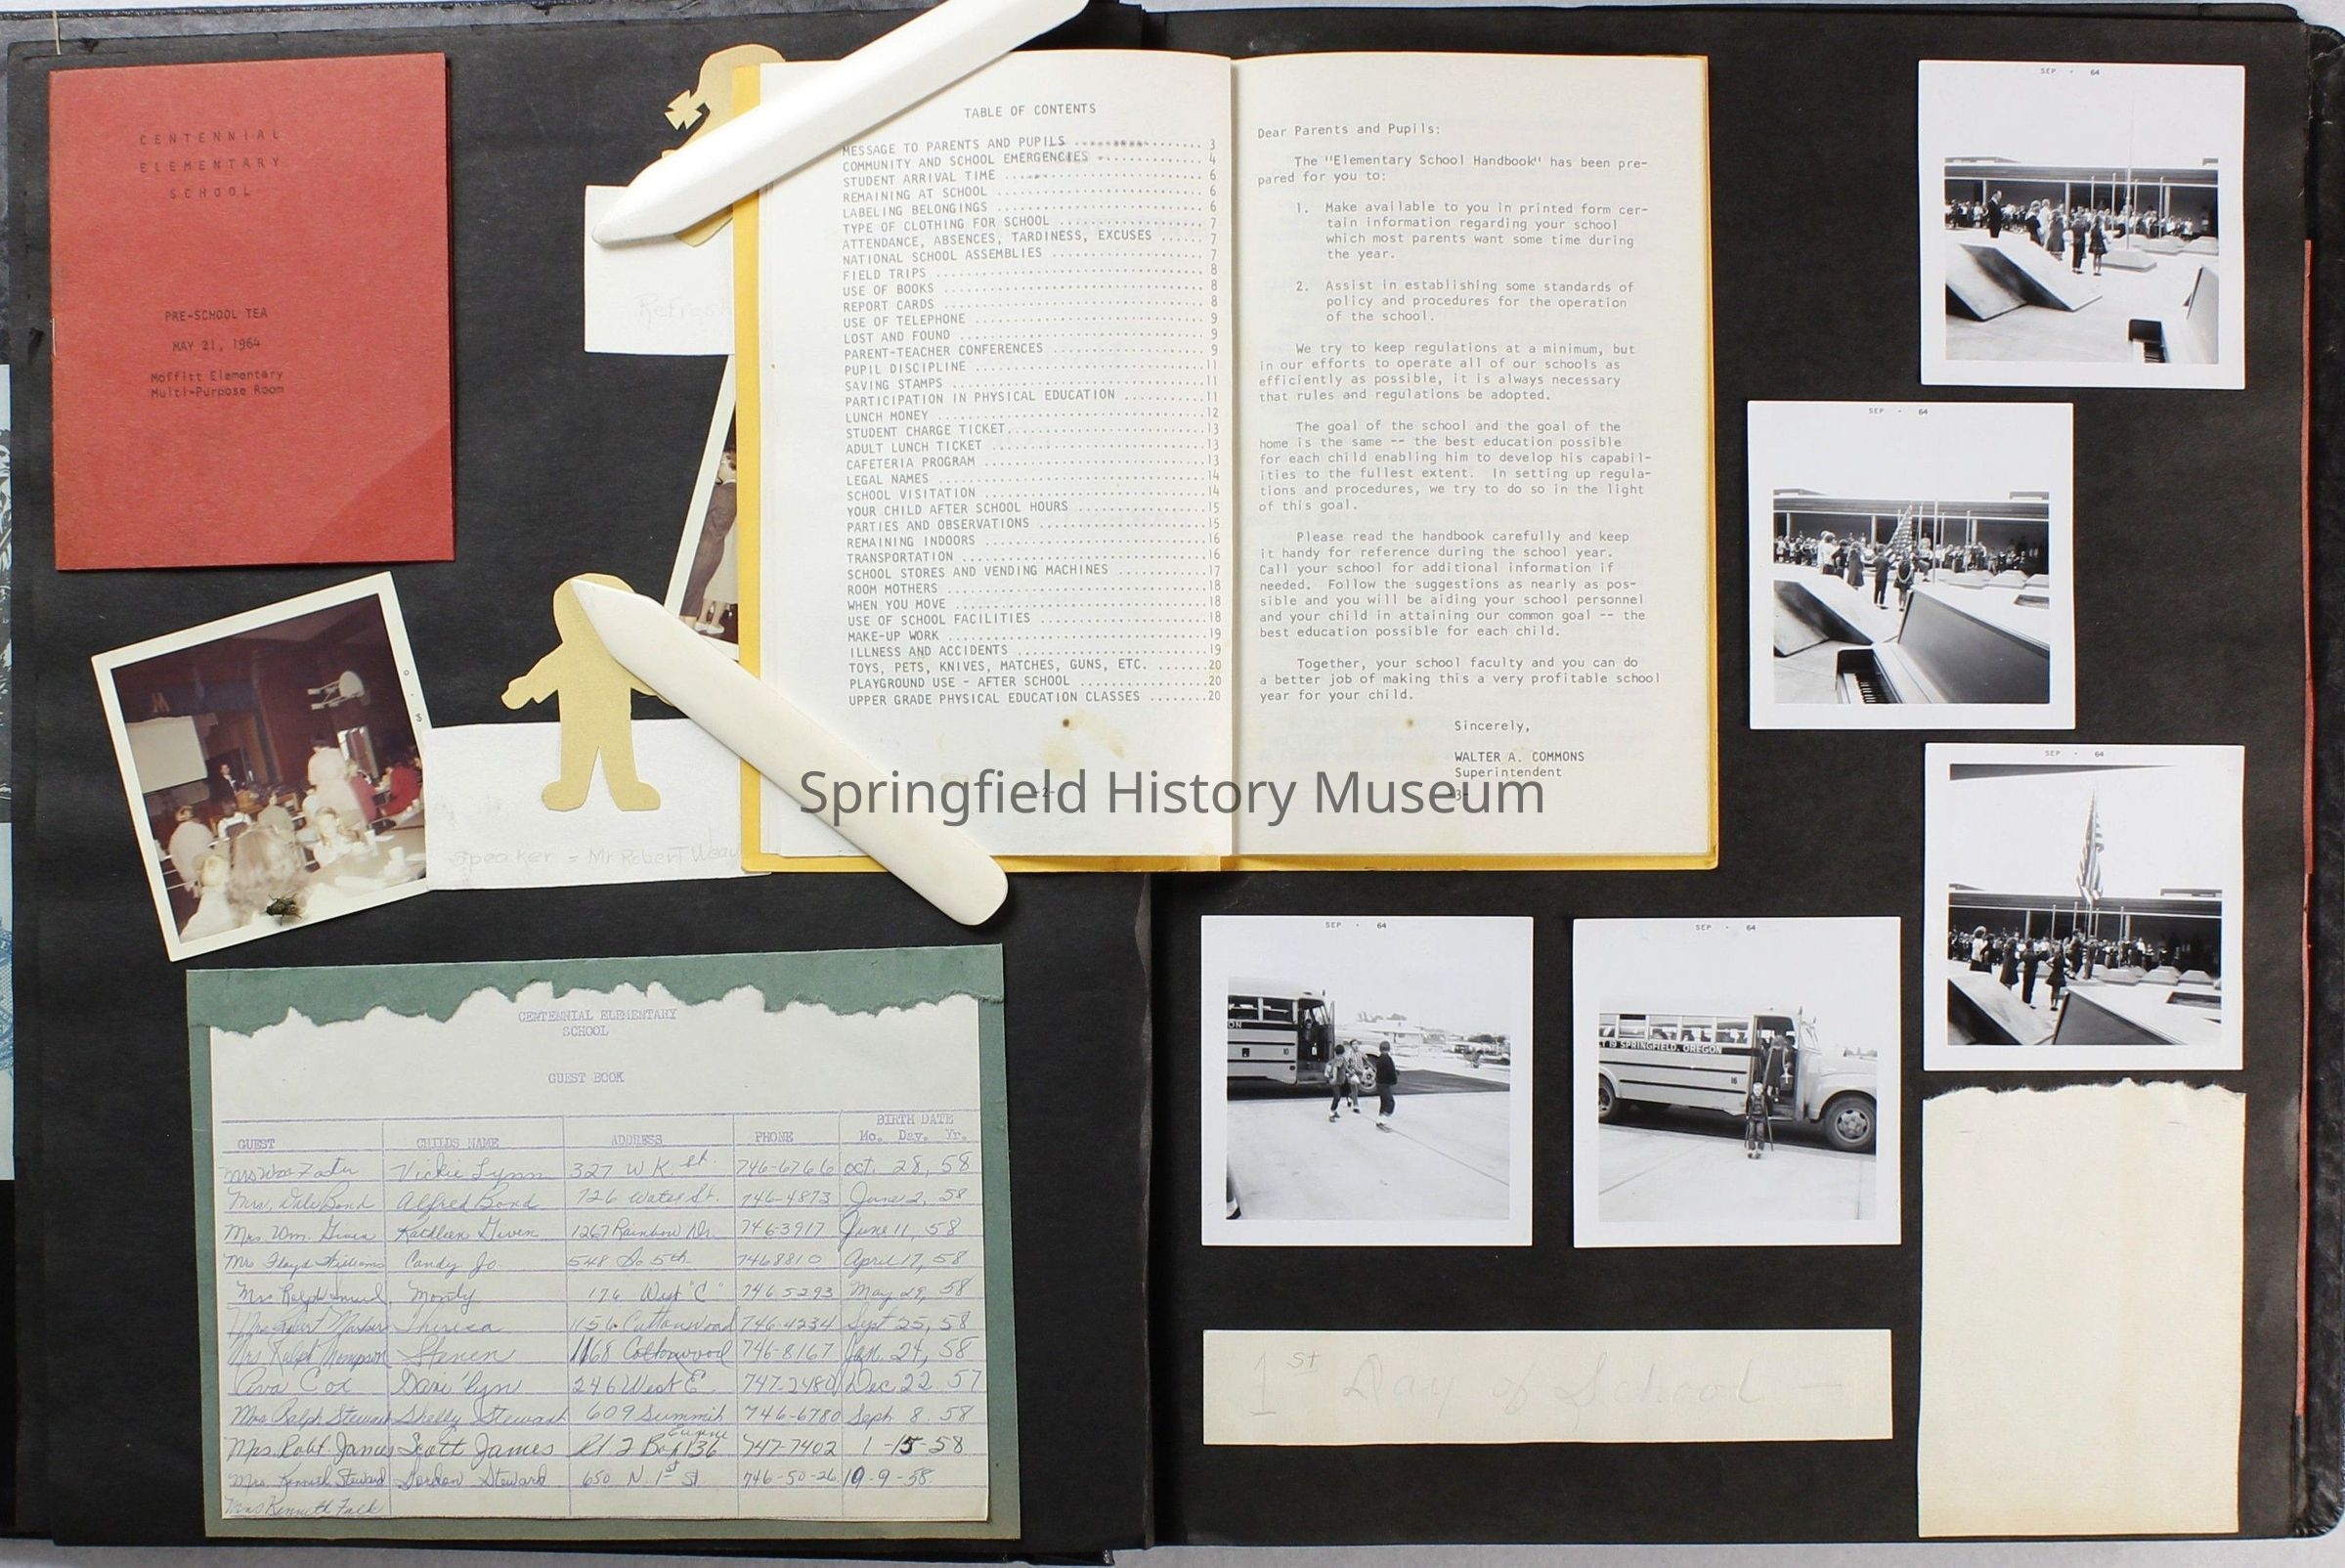 CENTENNIAL
ELEMENTARY
SCHOOL
PRE-SCHOOL TEA
MAY 21, 1964
Moffitt Elementary
Multi-Purpose Room
Refresh
Speaker - Mr Robert Weav
TABLE OF CONTENTS
MESSAGE TO PARENTS AND PUPILS 3
COMMUNITY AND SCHOOL EMERGENCIES 4
STUDENT ARRIVAL TIME 6
REMAINING AT SCHOOL 6
LABELING BELONGINGS 6
TYPE OF CLOTHING FOR SCHOOL 7
ATTENDANCE, ABSENCES, TARDINESS, EXCUSES 7
NATIONAL SCHOOL ASSEMBLIES 7
FIELD TRIPS 8
USE OF BOOKS 8
REPORT CARDS 8
USE OF TELEPHONE 9
LOST AND FOUND 9
PARENT-TEACHER CONFERENCES 9
PUPIL DISCIPLINE 11
SAVING STAMPS 11
PARTICIPATION IN PHYSICAL EDUCATION 11
LUNCH MONEY 12
STUDENT CHARGE TICKET 13
ADULT LUNCH TICKET 13
CAFETERIA PROGRAM 13
LEGAL NAMES 14
SCHOOL VISITATION 14
YOUR CHILD AFTER SCHOOL HOURS 15
PARTIES AND OBSERVATIONS 15
REMAINING INDOORS 16
TRANSPORTATION 16
SCHOOL STORES AND VENDING MACHINES 17
ROOM MOTHERS 18
WHEN YOU MOVE 18
USE OF SCHOOL FACILITIES 18
MAKE-UP WORK 19
ILLNESS AND ACCIDENTS 19
TOYS, PETS, KNIVES, MATCHES, GUNS, ETC. 20
PLAYGROUND USE - AFTER SCHOOL 20
UPPER GRADE PHYSICAL EDUCATION CLASSES 20
-2-
Dear Parents and Pupils:
The "Elementary School Handbook" has been pre-
pared for you to:
1. Make available to you in printed form cer-
tain information regarding your school
which most parents want some time during
the year.
2. Assist in establishing some standards of
policy and procedures for the operation
of the school.
We try to keep regulations at a minimum, but
in our efforts to operate all of our schools as
efficiently as possible, it is always necessary
that rules and regulations be adopted.
The goal of the school and the goal of the
home is the same -- the best education possible
for each child enabling him to develop his capabil-
ities to the fullest extent. In setting up regula-
tions and procedures, we try to do so in the light
of this goal.
Please read the handbook carefully and keep
it handy for reference during the school year.
Call your school for additional information if
needed. Follow the suggestions as nearly as pos-
sible and you will be aiding your school personnel
and your child in attaining our common goal -- the
best education possible for each child.
Together, your school faculty and you can do
a better job of making this a very profitable school
year for your child.
Sincerely,
WALTER A. COMMONS
Superintendent
-3-
Springfield History Museum
SEP · 64
SEP · 64
SEP · 64
SEP · 64
SEP · 64
ON
10
T 19 SPRINGFIELD, OREGON
16
1st Day of School -
CENTENNIAL ELEMENTARY
SCHOOL
GUEST BOOK
BIRTH DATE
GUEST CHILDS NAME ADDRESS PHONE Mo. Day. Yr.
Mrs Wm Vickie Lynn 327 W K St. 746-6766 oct. 28, 58
Mrs. Dale Bond Alfred Bond 726 Water St. 746-4873 June 2, 58
Mrs. Wm. Given Kathleen Given 1267 Rainbow Dr. 746-3917 June 11, 58
Mrs Floyd Williams Candy Jo 548 So 5th 7468810 April 17, 58
Mrs Ralph Monty 176 West "C" 746 5293 May 29, 58
Mrs Theresa 1156 Cottonwood 746-4234 Sept 25, 58
Mrs Ralph Thompson Steven 1168 Cottonwood 746-8167 Jan. 24, 58
Ava Cox Dani'lyn 246 West E 747-2480 Dec 22 57
Mrs Ralph Stewart Shelly Stewart 609 Summit 746-6780 Sept 8 58
Mrs. Robt. James Scott James Rt 2 Box 136 Eugene 747-7402 1-15-58
Mrs. Kenneth Steward Gordon Steward 650 N. 1st St. 746-50-26 10-9-58
Mrs Kenneth Falk